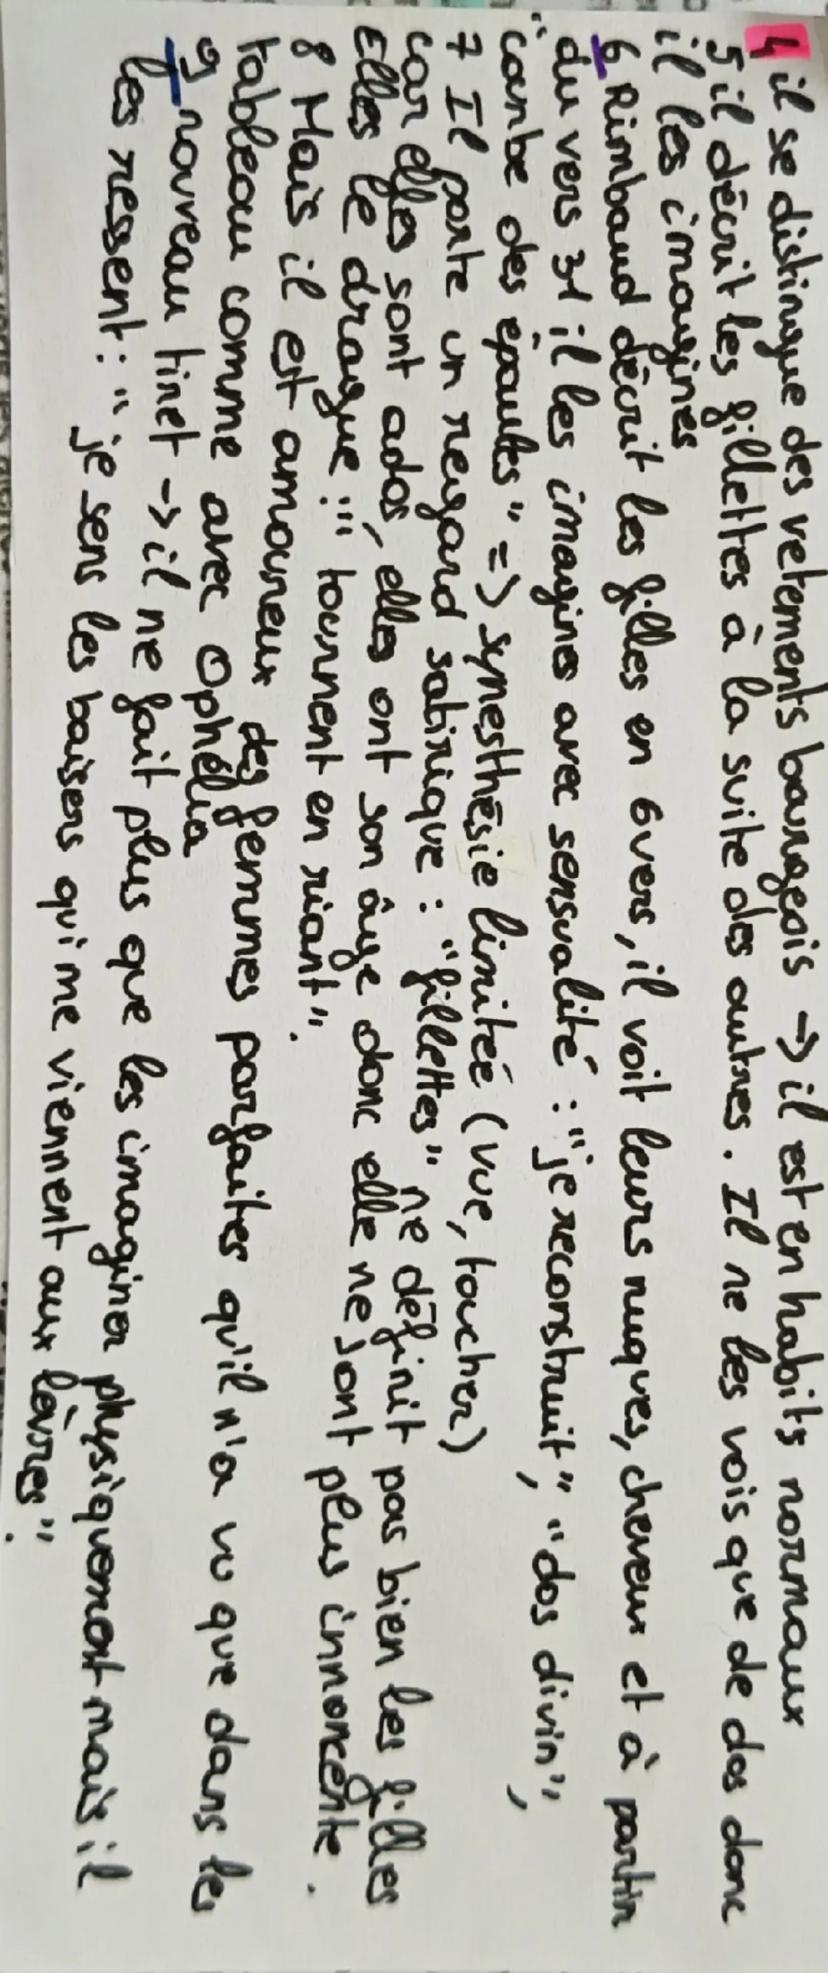 4 il se distingue des vetements bourgeois -> il est en habits normaux
5 il décrit les fillettes à la suite des autres. Il ne les vois que de dos donc
il les imagines
6 Rimbaud décrit les filles en 6 vers, il voit leurs nuques, cheveux et à partir
du vers 31 il les imagines avec sensualité : "je reconstruit", "dos divin",
"courbe des épaules" => synesthésie limitée (vue, toucher)
7 Il porte un regard satirique : "fillettes" ne définit pas bien les filles
car elles sont ados, elles ont son âge donc elle ne sont plus innoncente.
Elles le drague : "tournent en riant".
8 Mais il est amoureux des femmes parfaites qu'il n'a vu que dans les
tableau comme avec Ophélia
9 nouveau tiret -> il ne fait plus que les imaginer physiquement mais il
les ressent : "je sens les baisers qui me viennent aux lèvres".